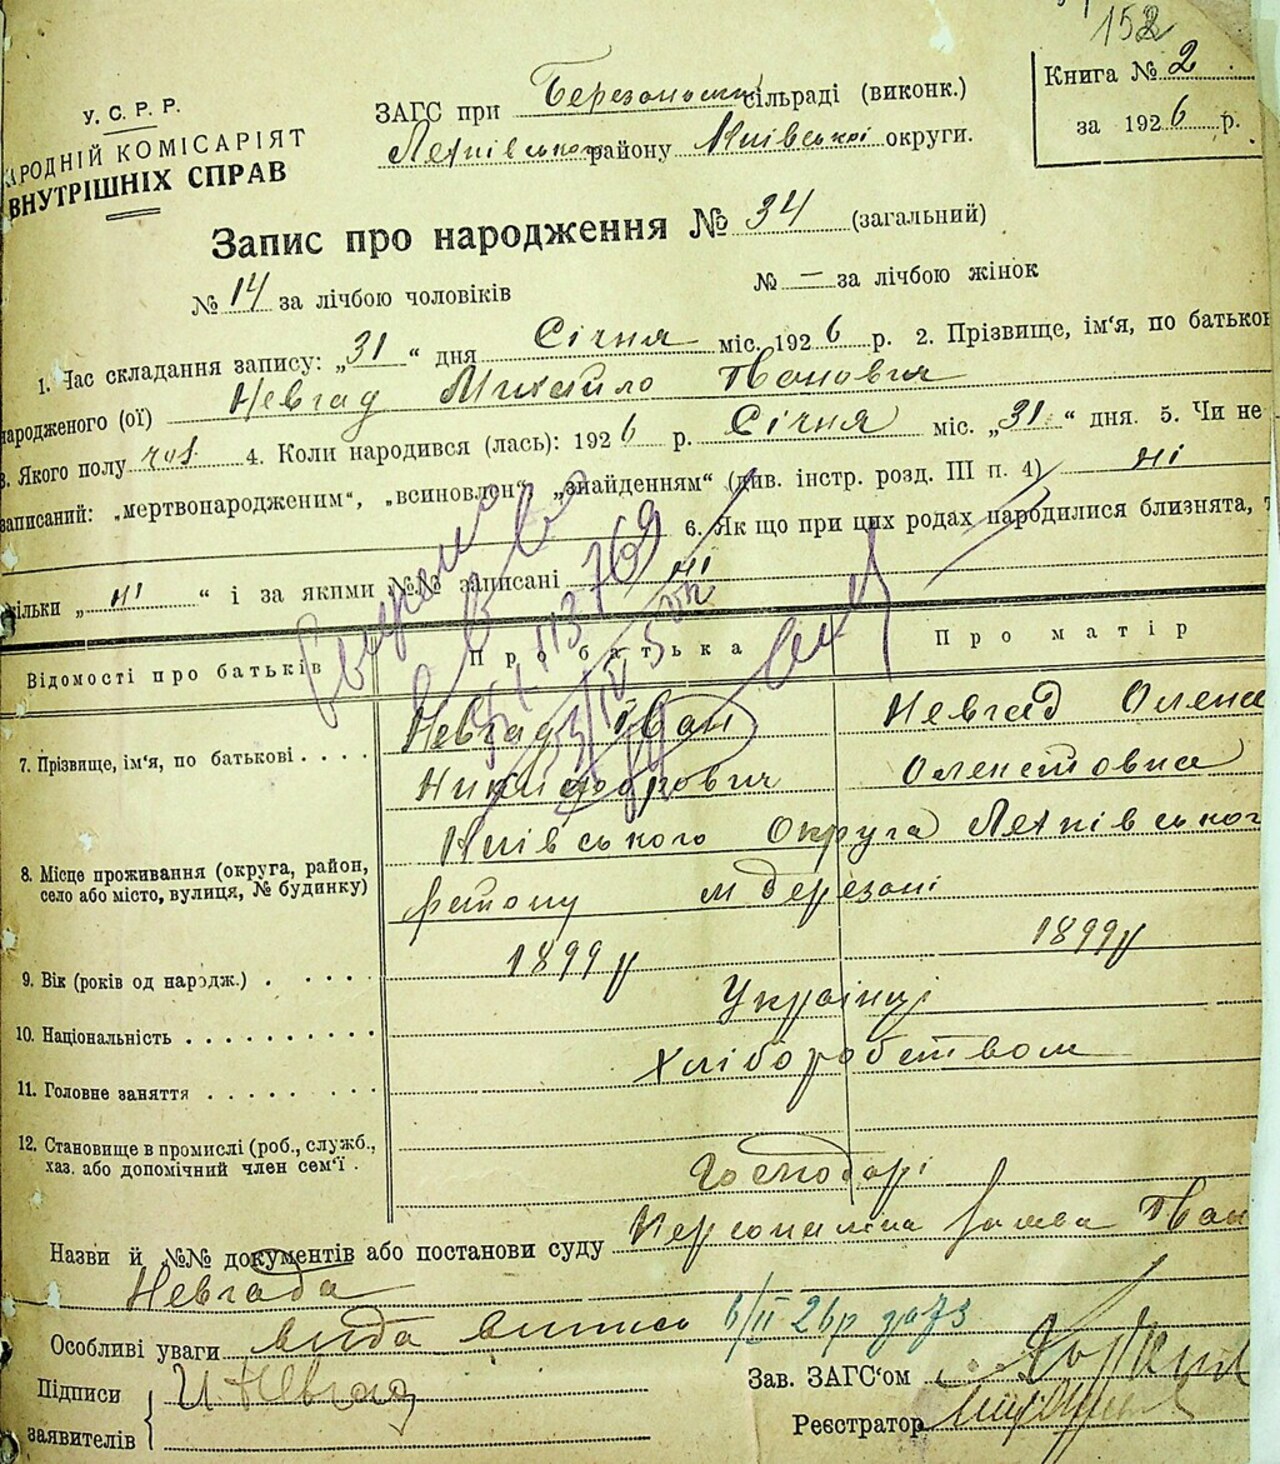 152
Книга № 2
за 1926 р.
У. С. Р. Р.
НАРОДНІЙ КОМІСАРІЯТ
ВНУТРІШНІХ СПРАВ
ЗАГС при сільраді (виконк.)
району Київської округи.
Запис про народження № 34 (загальний)
№ 14 за лічбою чоловіків № — за лічбою жінок
1. Час складання запису: „31“ дня Січня міс. 1926 р. 2. Прізвище, ім‘я, по батькові
народженого (ої) Невгад Михайло Іванович
3. Якого полу чол. 4. Коли народився (лась): 1926 р. Січня міс. „31“ дня. 5. Чи не
записаний: „мертвонародженим“, „всиновлен“, „знайденням“ (див. інстр. розд. III п. 4) ні
6. Як що при цих родах народилися близнята, т
кільки „ні“ і за якими №№ записані ні
Відомості про батьків Про батька Про матір
7. Прізвище, ім‘я, по батькові . . . . Невгад Іван Невгад Олена
Никифорович
8. Місце проживання (округа, район, село або місто, вулиця, № будинку) Київського Округа
району м Березані
9. Вік (років од народж.) . . . . . 1899 р 1899 р
10. Національність . . . . . . . . . . Українці
11. Головне заняття . . . . . . . . Хліборобством
12. Становище в промислі (роб., служб.,
хаз. або допомічний член сем‘ї . Господарі
Назви й №№ документів або постанови суду заява Іван
Невгада
Особливі уваги вида випись 6/II 26р за 73
Підписи И Невгад
заявителів
Зав. ЗАГС‘ом
Реєстратор